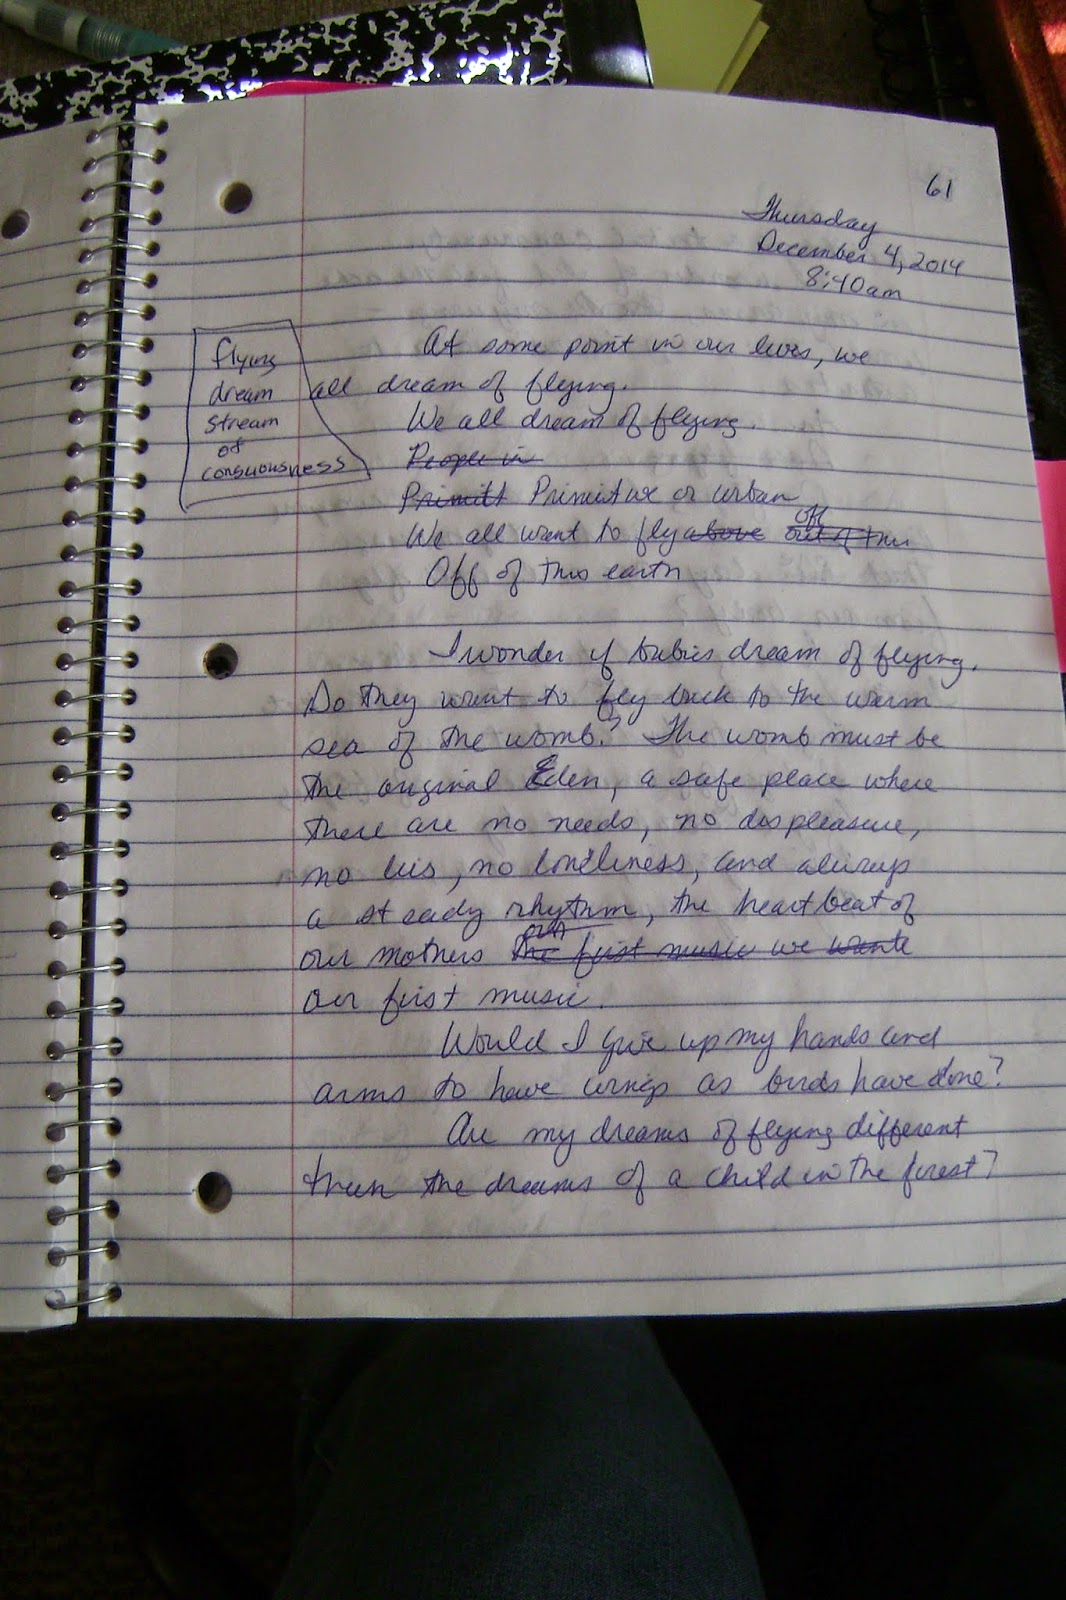 61
Thursday
December 4, 2014
8:40am
flying
dream
stream
of
consuousness
At some point in our lives, we
all dream of flying.
We all dream of flying.
People in
Primitt Primitive or urban
We all want to fly above off out of this
Off of this earth
I wonder if babies dream of flying.
Do they want to fly back to the warm
sea of the womb? The womb must be
the original Eden, a safe place where
there are no needs, no displeasure,
no lies, no loneliness, and always
a steady rhythm, the heartbeat of
our mothers our the first music we
our first music.
Would I give up my hands and
arms to have wings as birds have done?
Are my dreams of flying different
than the dreams of a child in the forest?